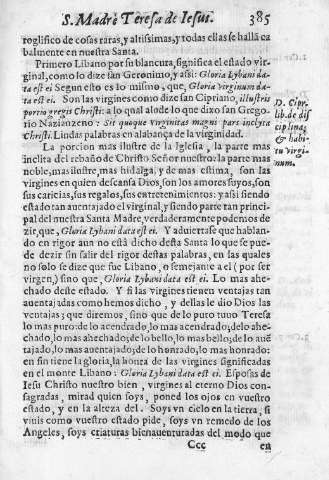 S. Madre Teresa de Iesus. 385
roglifico de cosas raras, y altissimas, y todas ellas se hallã ca
balmente en nuestra Santa.
Primero Libano por su blancura, significa el estado vir
ginal, como lo dize san Geronimo, y assi: Gloria Lybani da-
ta est ei Segun esto es lo mismo, que, Gloria virginum da-
ta est ei. Son las virgines como dize san Cipriano, illustris
portio gregis Christi: a lo qual alude lo que dixo san Grego-
rio Nazianzeno: Sit quoque virginitas magni pars inclyta
Christi. Lindas palabras en alabança de la virginidad.
D. Cipr.
lib. de dis
ciplina,
& habi-
tu virgi-
num.
La porcion mas ilustre de la Iglesia, la parte mas
inclita del rebaño de Christo Señor nuestro: la parte mas
noble, mas ilustre, mas hidalga, y de mas estima, son las
virgines en quien descansa Dios, son los amores suyos, son
sus caricias, sus regalos, sus entretenimientos: y assi siendo
estado tan auentajado el virginal, y siendo parte tan princi-
pal del nuestra Santa Madre, verdaderamente podemos de
zir, que, Gloria Lybani data est ei. Y aduiertase que hablan-
do en rigor aun no està dicho desta Santa lo que se pue-
de dezir sin salir del rigor destas palabras, en las quales
no solo se dize que fue Libano, o semejante a el (por ser
virgen) sino que, Gloria Lybani data est ei. Lo mas ahe-
chado deste estado. Y si las virgines tienen ventajas tan
auentajadas como hemos dicho, y dellas le dio Dios las
ventajas; que diremos, sino que de lo puro tuuo Teresa
lo mas puro: de lo acendrado, lo mas acendrado; delo ahe-
chado, lo mas ahechado; de lo bello, lo mas bello; de lo auẽ
tajado, lo mas auentajado; de lo honrado, lo mas honrado:
en sin tiene la gloria, la honra de las virgines significadas
en el monte Libano: Gloria Lybani data est ei. Esposas de
Iesu Christo nuestro bien, virgines al eterno Dios con-
sagradas, mirad quien soys, poned los ojos en vuestro
estado, y en la alteza del. Soys vn cielo en la tierra, si
viuis como vuestro estado pide, soys vn remedo de los
Angeles, soys criaturas bienauenturadas del modo que
Ccc en